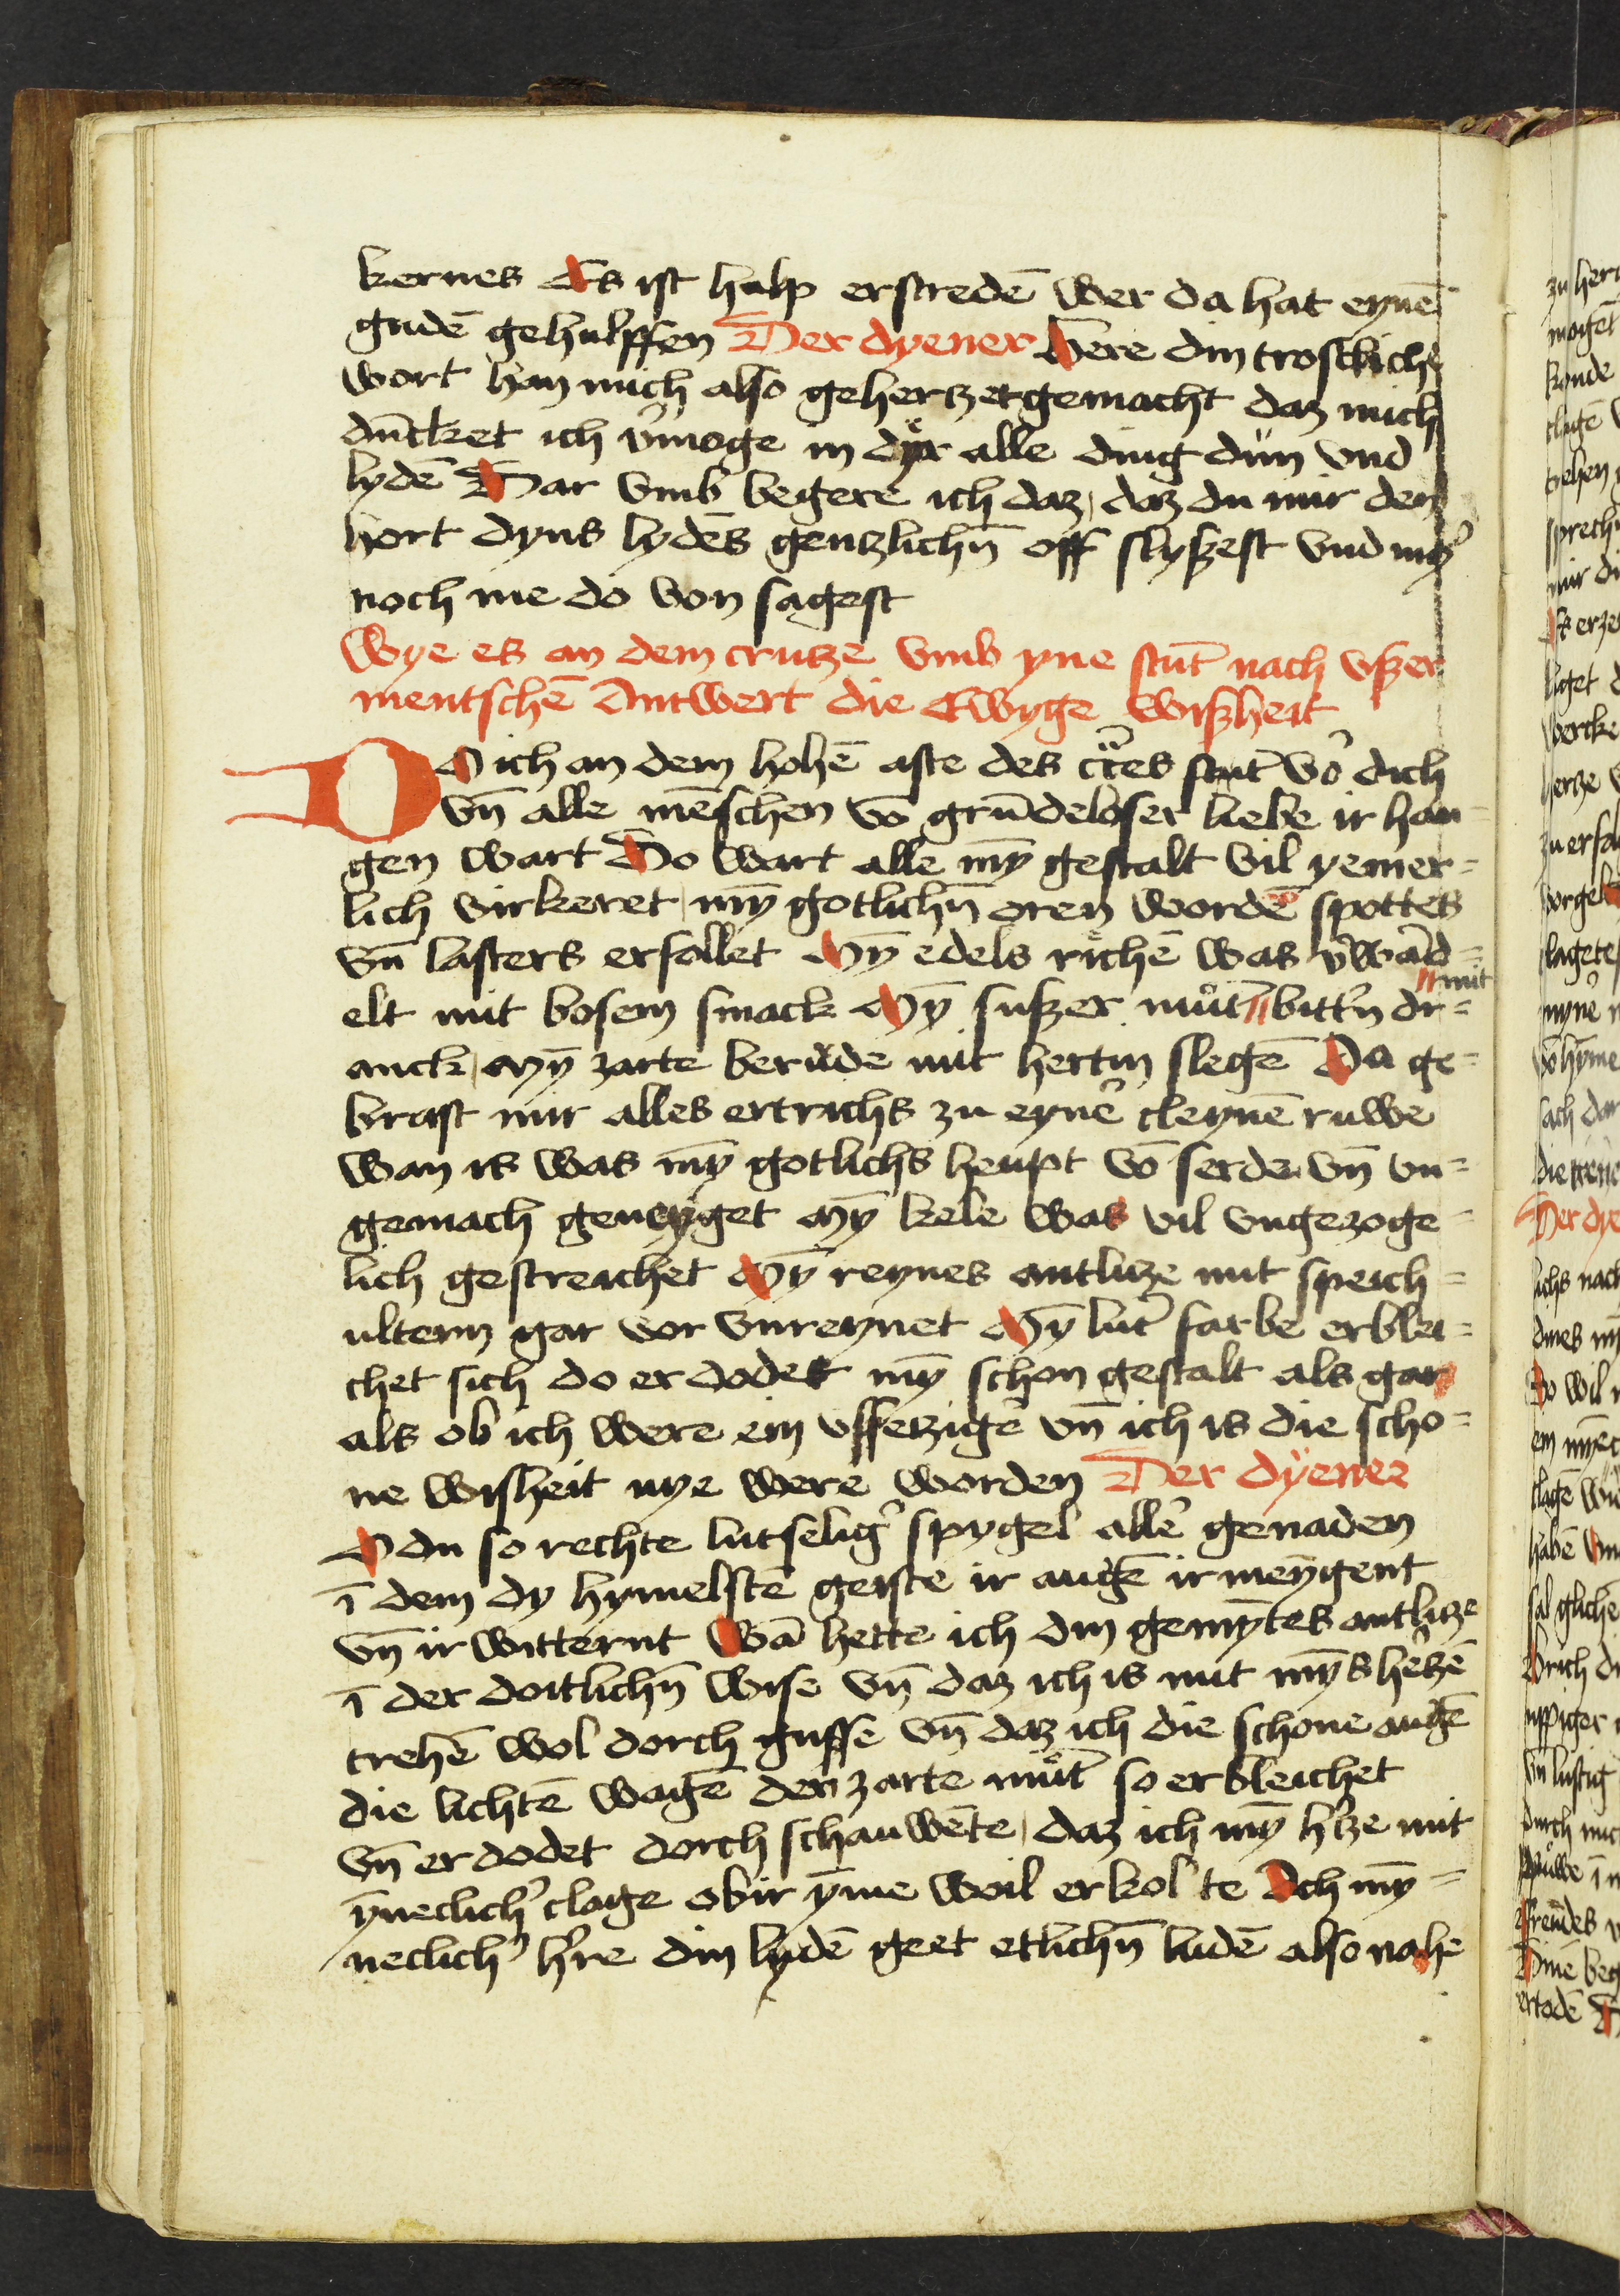 kernes Es ist halp erstredē wer da hat eynē
gudē gehulffen Der dyener Here din trostliche
wort han mich also gehertzet gemacht daz mich
dūcket ich v͛moge in dyr alle ding dün vnd
lydē Dar vmb begere ich daz, daz du mir den
hort dyns lydēs gentzlichn̄ off slyßest vnd my͛
noch me do von sagest
Wye es an dem crutze vmb yne stūt nach vßer
mentschē Antwert die Ewyge wißheit
DO ich an dem hohē aste des crͨes stūt vō dich
vn̄ alle mēschen vō grūdeloser liebe ir han-
gen wart Do wart alle my̅ gestalt vil yemer-
lich virkeret, my̅ gotlichn̄ oren wordē spottes
vn̄ lasters erfollet My̅ edels richē was v͛wād=
elt mit bosem smack My̅ sußer mūt //mit bitt͛n dr=
anck, My̅ zarte berude mit hertin slegē Da ge=
brast mir alles ertrichs zu eyn͛ cleynē ruwe
wan is was my̅ gotlichs heupt vō serde vn̄ vn=
gemach geneyget My̅ kele was vil vngezoge=
lich gestreichet My̅ reynes antlitze mit speich=
iltern gar vor vnreynet My̅ lut͛ farbe erblei=
chet sich do er dodet my̅ schon gestalt als gar
als ob ich were ein vssetzig͛ vn̄ ich is die scho=
ne wisheit nye were worden Der dyener
O du so rechte lutselig͛ spygel all͛ genaden
ī dem dy hymelstē geiste ir augē ir meygent
vn̄ ir witternt Wā hette ich din gemy̅tes antlitze
ī der doitlichn̄ wise vn̄ daz ich is mit my̅s h͛tzē
trehē wol dorch gusse vn̄ daz ich die schone augē
die lichtē wagē den zarte mūt so erbleichet
vn̄ er dodet dorch schauwēte, daz ich my̅ h͛tze mit
y̅neclich͛ clage obir y̅me woil erkol te Ach my̅=
neclich͛ h͛re din lydē geet etlichn̄ ludē also nahe